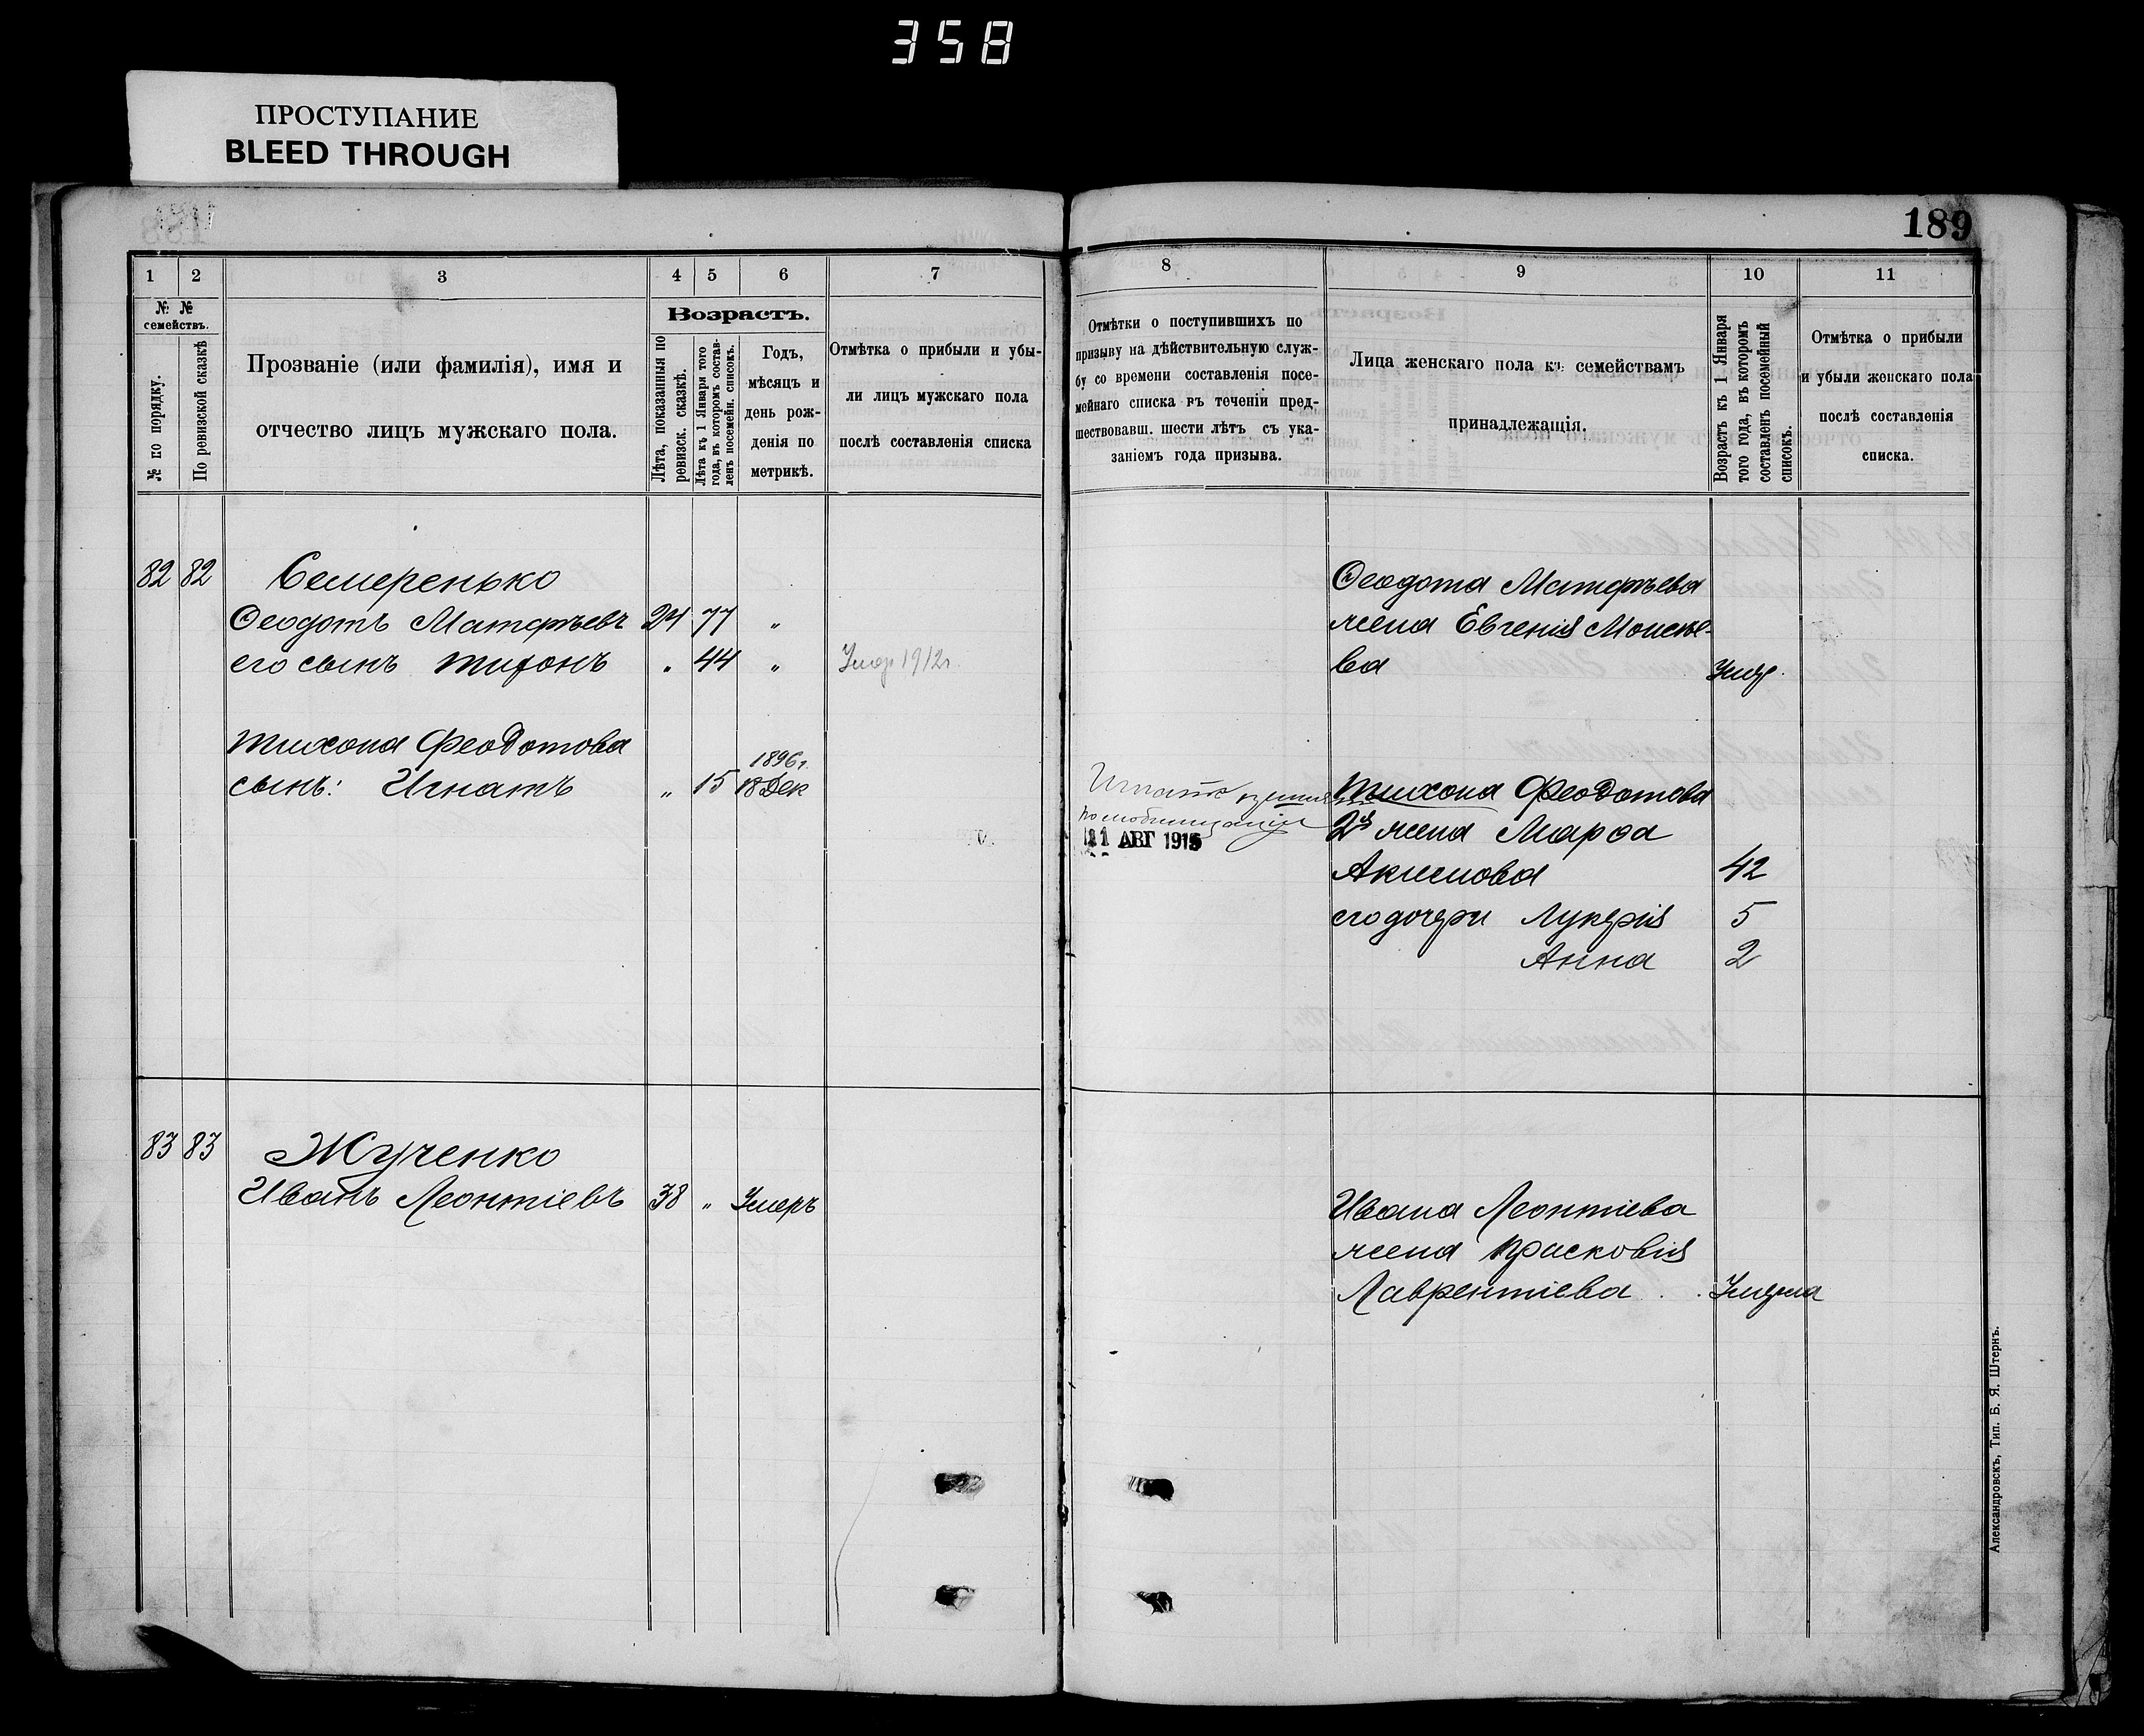 358
ПРОСТУПАНИЕ
BLEED THROUGH
189
1 2 3 4 5 6 7
№ № семействъ.
№ по порядку.
По ревизской сказкѣ
Прозваніе (или фамилія), имя и
отчество лицъ мужскаго пола.
Возрастъ.
Лѣта, показанныя по
ревизск. сказкѣ.
Лѣта къ 1 Января того
года, въ которомъ состав-
ленъ посемейн. списокъ.
Годъ,
мѣсяцъ и
день рож-
денія по
метрикѣ.
Отмѣтка о прибыли и убы-
ли лицъ мужскаго пола
послѣ составленія списка
82 82 Семеренько
Ѳеодотъ Матфѣевъ 24 77 "
его сынъ Тихонъ " 44 " Умер 1912г.
Тихона Феодотова
1896г.
сынъ: Игнатъ " 15 18 Дек
83 83 Жученко
Иванъ Леонтіевъ 38 " Умеръ
8 9 10 11
Отмѣтки о поступившихъ по
призыву на дѣйствительную служ-
бу со времени составленія посе-
мейнаго списка въ теченіи пред-
шествовавш. шести лѣтъ съ ука-
заніемъ года призыва.
Лица женскаго пола къ семействамъ
принадлежащія.
Возрастъ къ 1 Января
того года, въ которомъ
составленъ посемейный
списокъ.
Отмѣтка о прибыли
и убыли женскаго пола
послѣ составленія
списка.
Ѳеодота Матфѣева
жена Евгенія Моисѣе-
ва Умер.
Игнатъ
по мобилизаціи
11 АВГ 1915
Тихона Феодотова
2я жена Марѳа
Акимова 42
его дочери Лукерія 5
Анна 2
Ивана Леонтіева
жена Прасковія
Лаврентіева Умерла
Александровскъ, Тип. Б. Я. Штернъ.